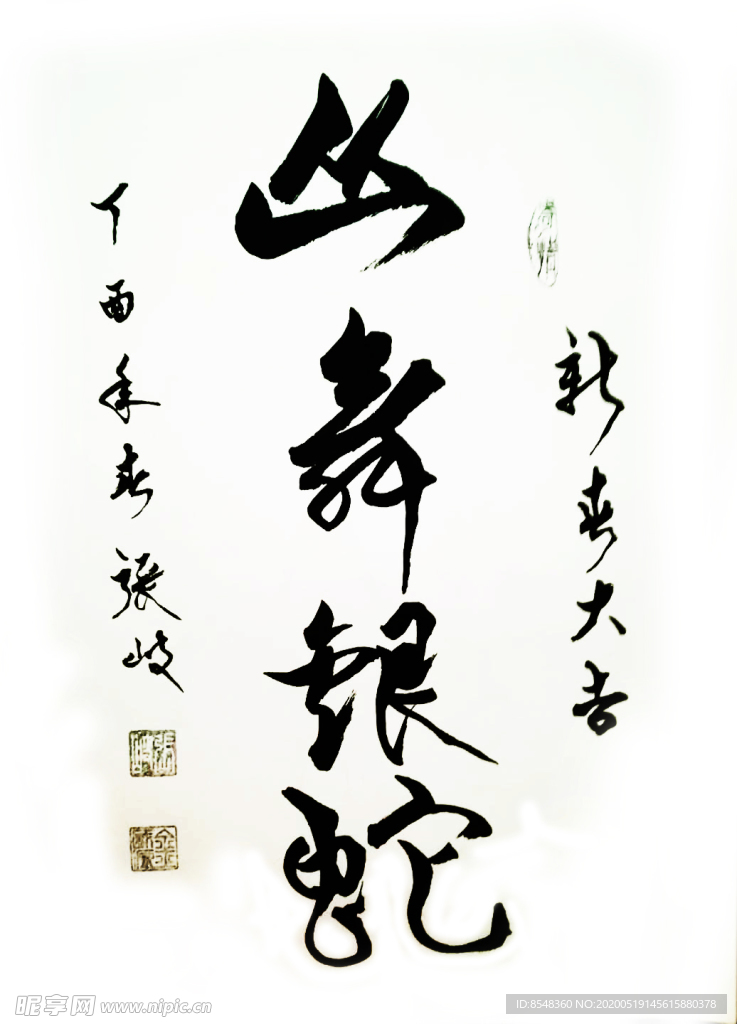 新春大吉
山舞銀蛇
丁酉年春張岐
昵享网 www.nipic.cn
ID:8548360 NO:20200519145615880378